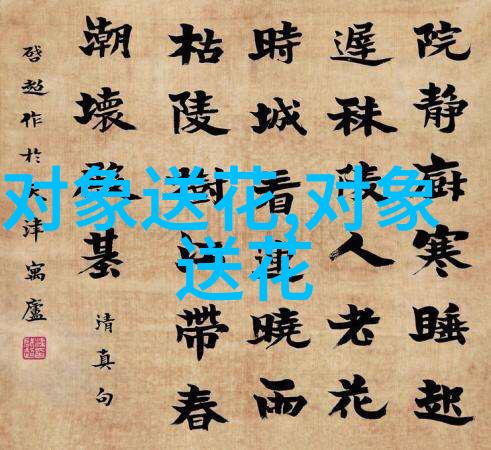 院靜廚寒睡起
遲秣陵人老花
時城看連曉雨
枯陵樹江帶春
潮壞基
清真句
啓超作於天津寓廬
对象送花,对象
送花